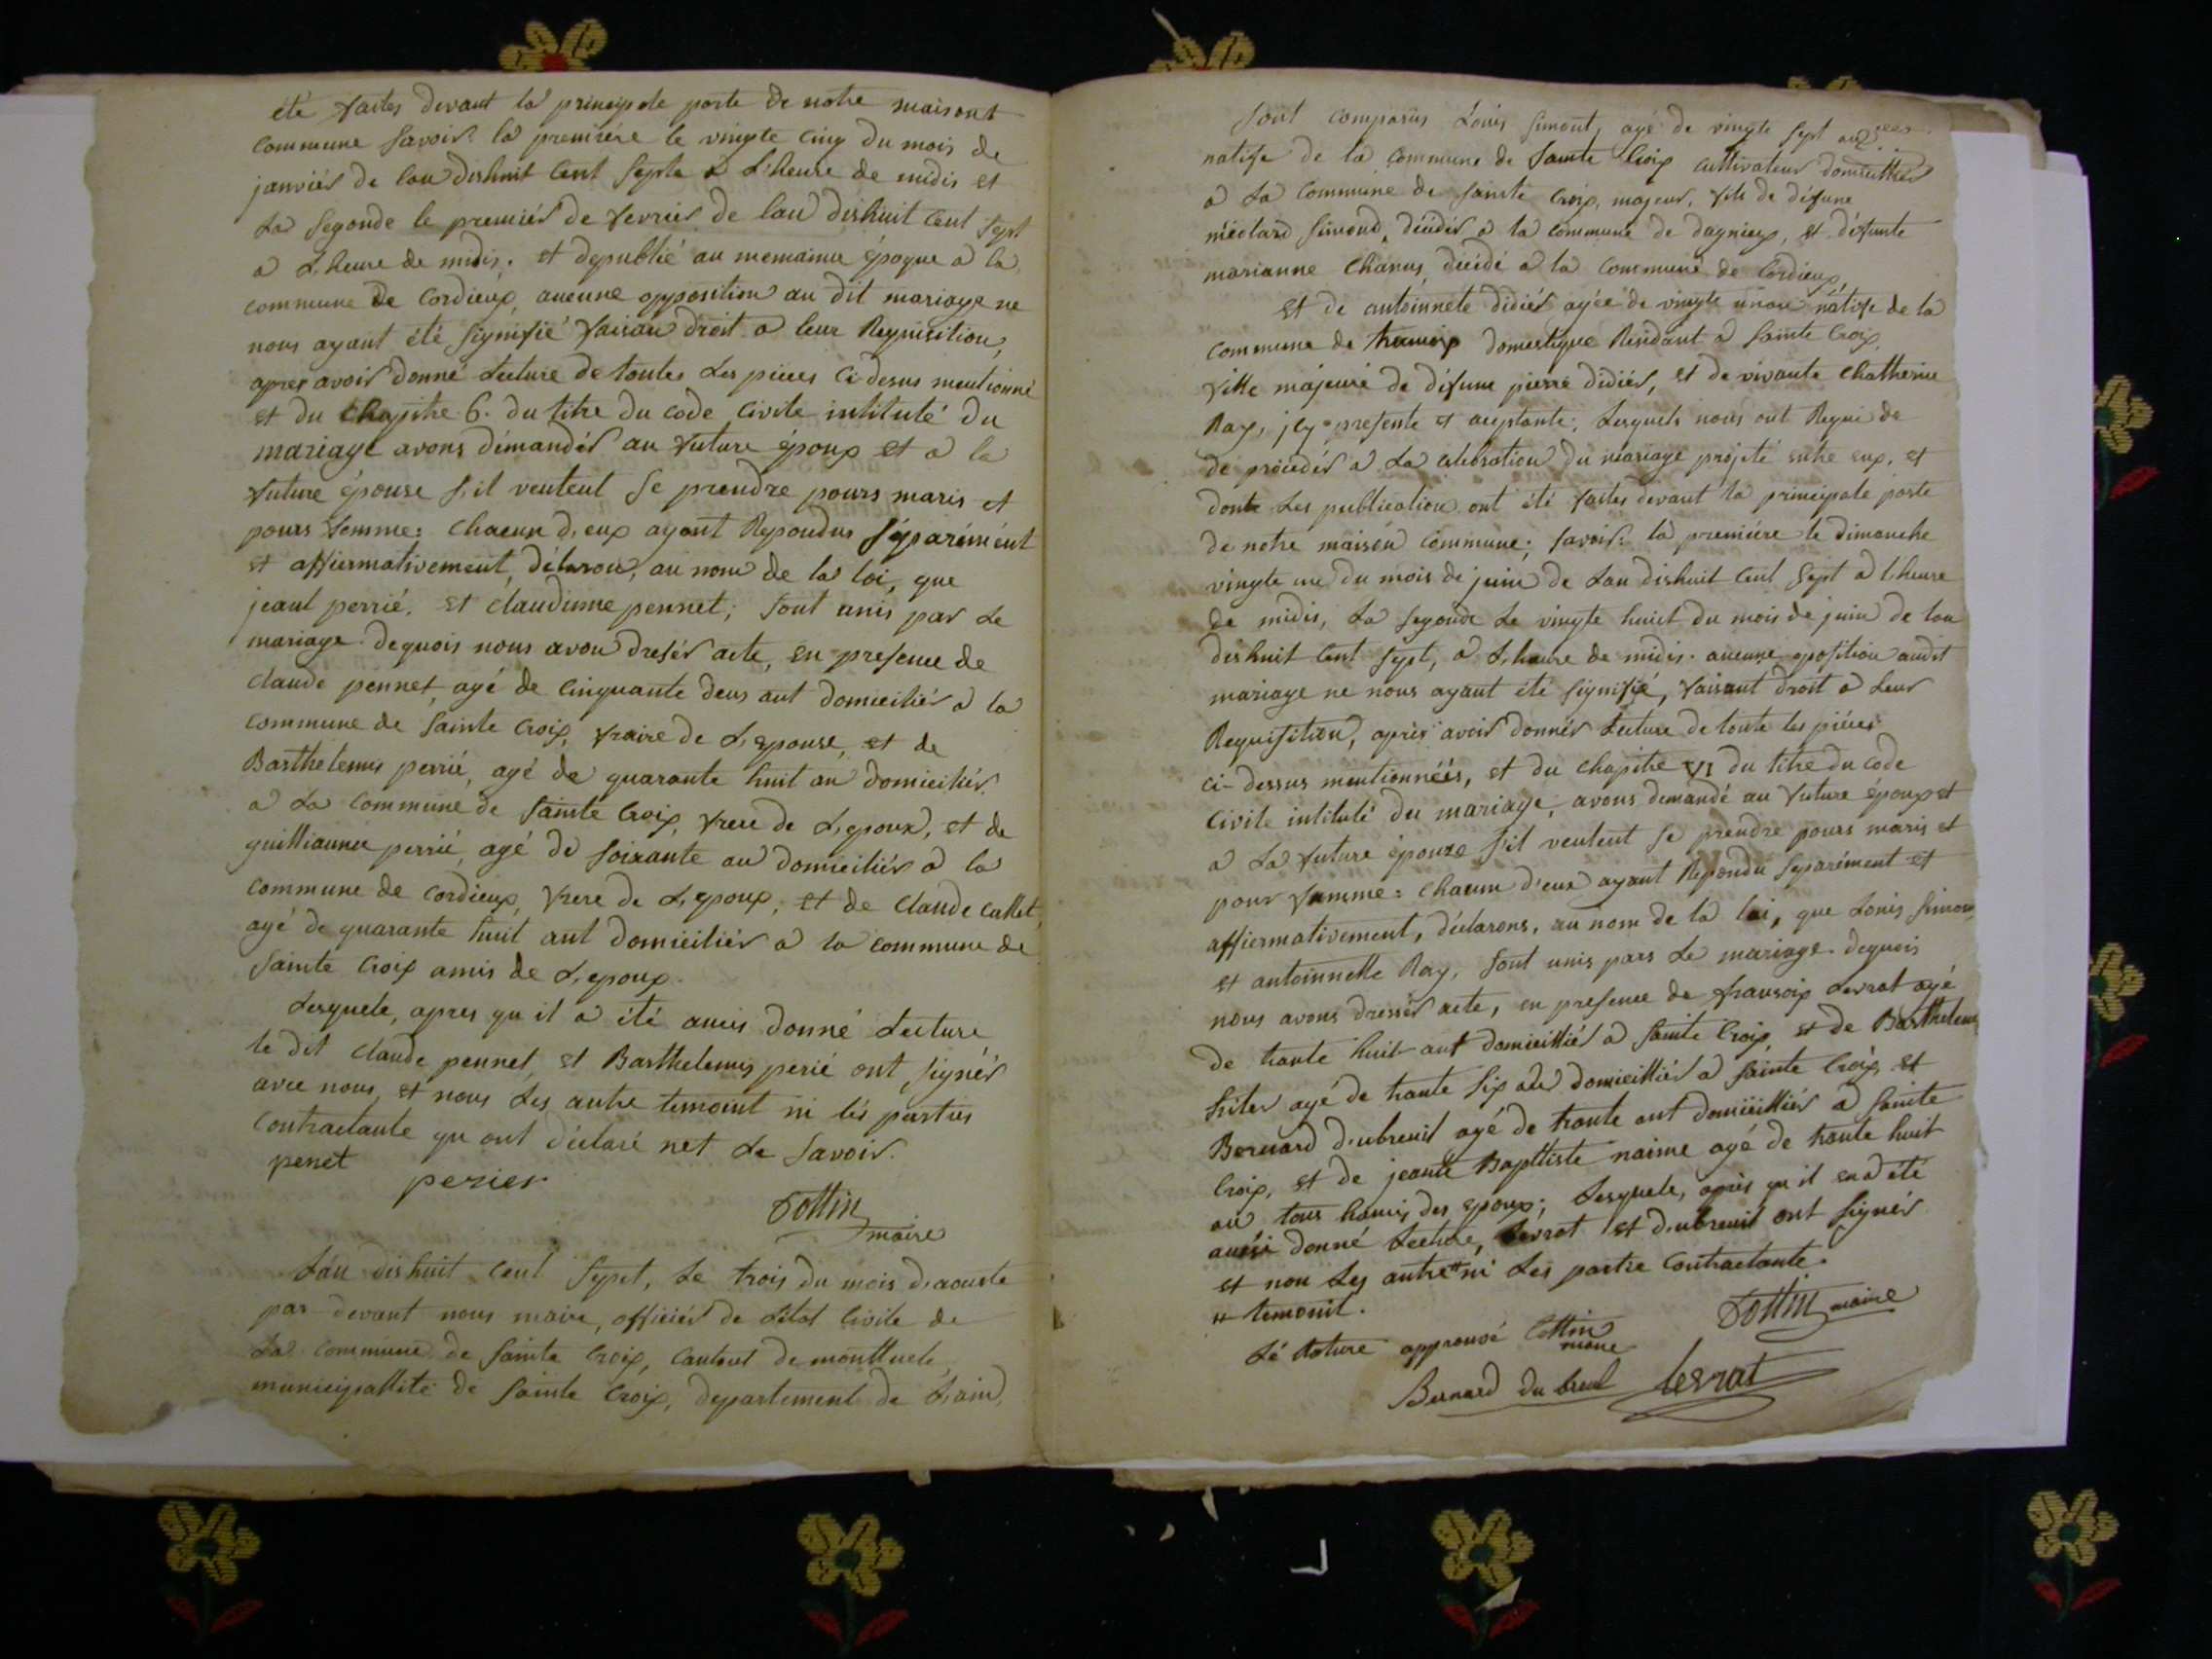 été faites devant la principale porte de notre maisont
commune savoir la première le vingte cinq du mois de
janviér de lan dishuit cent septe a l'heure de midis et
La segonde le premiér de fevriér de lan dishuit cent sept
a L,heure de midis. et depublié au memaime époque a la
commune de Cordieux, aucune opposition au dit mariage ne
nous ayant été signifié faisan droit a leur Requisition,
apres avoir donné Lecture de toutes Les pieces Ci desus mentionné
et du Chapitre 6. du titre du code Civile intitulé du
mariage avons démandér au future époux et a la
future épouse s,il veulent se prendre pours maris et
pours femme: Chacun d,eux ayant Repondus séparément
et affiermativement, déclaron, au nom de la loi, que
jeant perrié. et claudinne pennet; sont unis par Le
mariage. dequois nous avon dresér acte, en presence de
claude pennet, agé de Cinquante deus ant domiciliér a la
commune de sainte Croix, fraire de L,epouse, et de
Barthelemis perrié, agé de quarante huit an domiciliér
a La Commune de sainte Croix, frere de L,epoux, et de
guilliaume perrié, agé de soixante an domiciliér a la
commune de cordieux, frere de L,epoux, et de Claude callet,
agé de quarante huit ant domiciliér a la commune de
sainte Croix amis de L,epoux.
Lesquele, apres qu il a été aucis donné Lecture
le dit claude pennet, et Barthelemis perié ont signér
avec nous, et nous Les autre temoint ni lés parties
Contractante qu ont déclaré net Le savoir.
penet
perier
Cottin
maire
L'an dishuit cent sepet, Le trois du mois d,aouste
par devant nous maire, officiér de L'état Civile de
La commune de sainte Croix, Cantout de montluele,
municipallité de sainte Croix, departement de L,ain,
sont comparus Louis simont, agé de vingte sept an
natife de la Commune de sainte Croix cultivateur domicillier
a La Commune de sainte Croix, majeur, fils de défune
médard simond, décédér a la Commune de dagnieux, et défunte
marianne Chanus décédé a la Communé de Cordieux,
et de antoinnete didiér agée de vingte un an nâtife de la
Commune de domestique Residant a sainte Croix,
fille majeure de défunt pierre didiér, et de vivante Chatherine
Ray, jcy presente et aceptante; Lesquels nous ont Requi de
de procedér a La celebration du mariage projeté entre eux, et
donte Les publication ont été faites devant la principale porte
de notre maison Commune; savoir: la première le dimanche
vingte une du mois de juin de Lan dishuit cent sept a l,heure
de midis, La segonde Le vingte huit du mois de juin de lan
dishuit cent sept, a L,heure de midis. aucune oposition audit
mariage ne nous ayant été signifié, faisant droit a Leur
Requisition, après avoir donnér Lecture de toute les piéces
ci-dessus mentionnéés, et du Chapitre VI du titre du code
Civile intitulé du mariage, avons demandé au future époux et
a La future épouze s'il veulent se prendre pours maris et
pour famme: Chacun d'eux ayant Repondu separément et
affiermativement, déclarons, au nom de la loi, que Louis simon
et antoinnette Ray, sont unis pars Le mariage. dequois
nous avons dressér acte, en presence de fransoix Levrat agé
de trante huit ant domicilliér a sainte Croix, et de Barthelemi
agé de trante six an domicilliér a sainte Croix et
Bernard dubreuil agé de trante ant domicilliér a sainte
Croix, et de jeante Baptiste naime agé de trante huit
an tous hamis des epoux; Lesquele, après qu il en a été
aucsi donné Lecture, Levrat et d,ubreuil ont signér
et non Les autre ni Les partie Contractante.
temonit.
Lé Rature approuvé Cottin
maire
Cottin maire
Bernard du breul
levrat